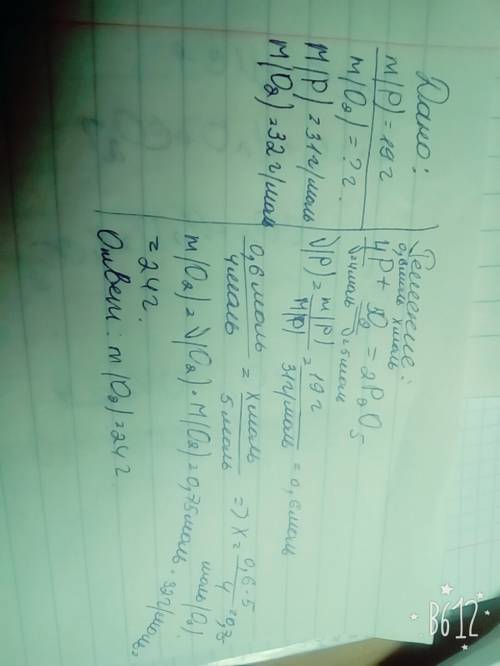 Дано:
m(P) = 19 г
m(O₂) = ? г.
M(P) = 31 г/моль
M(O₂) = 32 г/моль
Решение:
0,6 моль x моль
4P + 5O₂ = 2P₂O₅
ν=4моль ν=5моль
ν(P) = m(P)/M(P) = 19 г/31 г/моль = 0,6 моль
0,6 моль/4 моль = x моль/5 моль => x = 0,6·5/4 = 0,75
моль(O₂).
m(O₂) = ν(O₂)·M(O₂) = 0,75 моль · 32 г/моль =
= 24 г.
Ответ: m(O₂) = 24 г.
B612